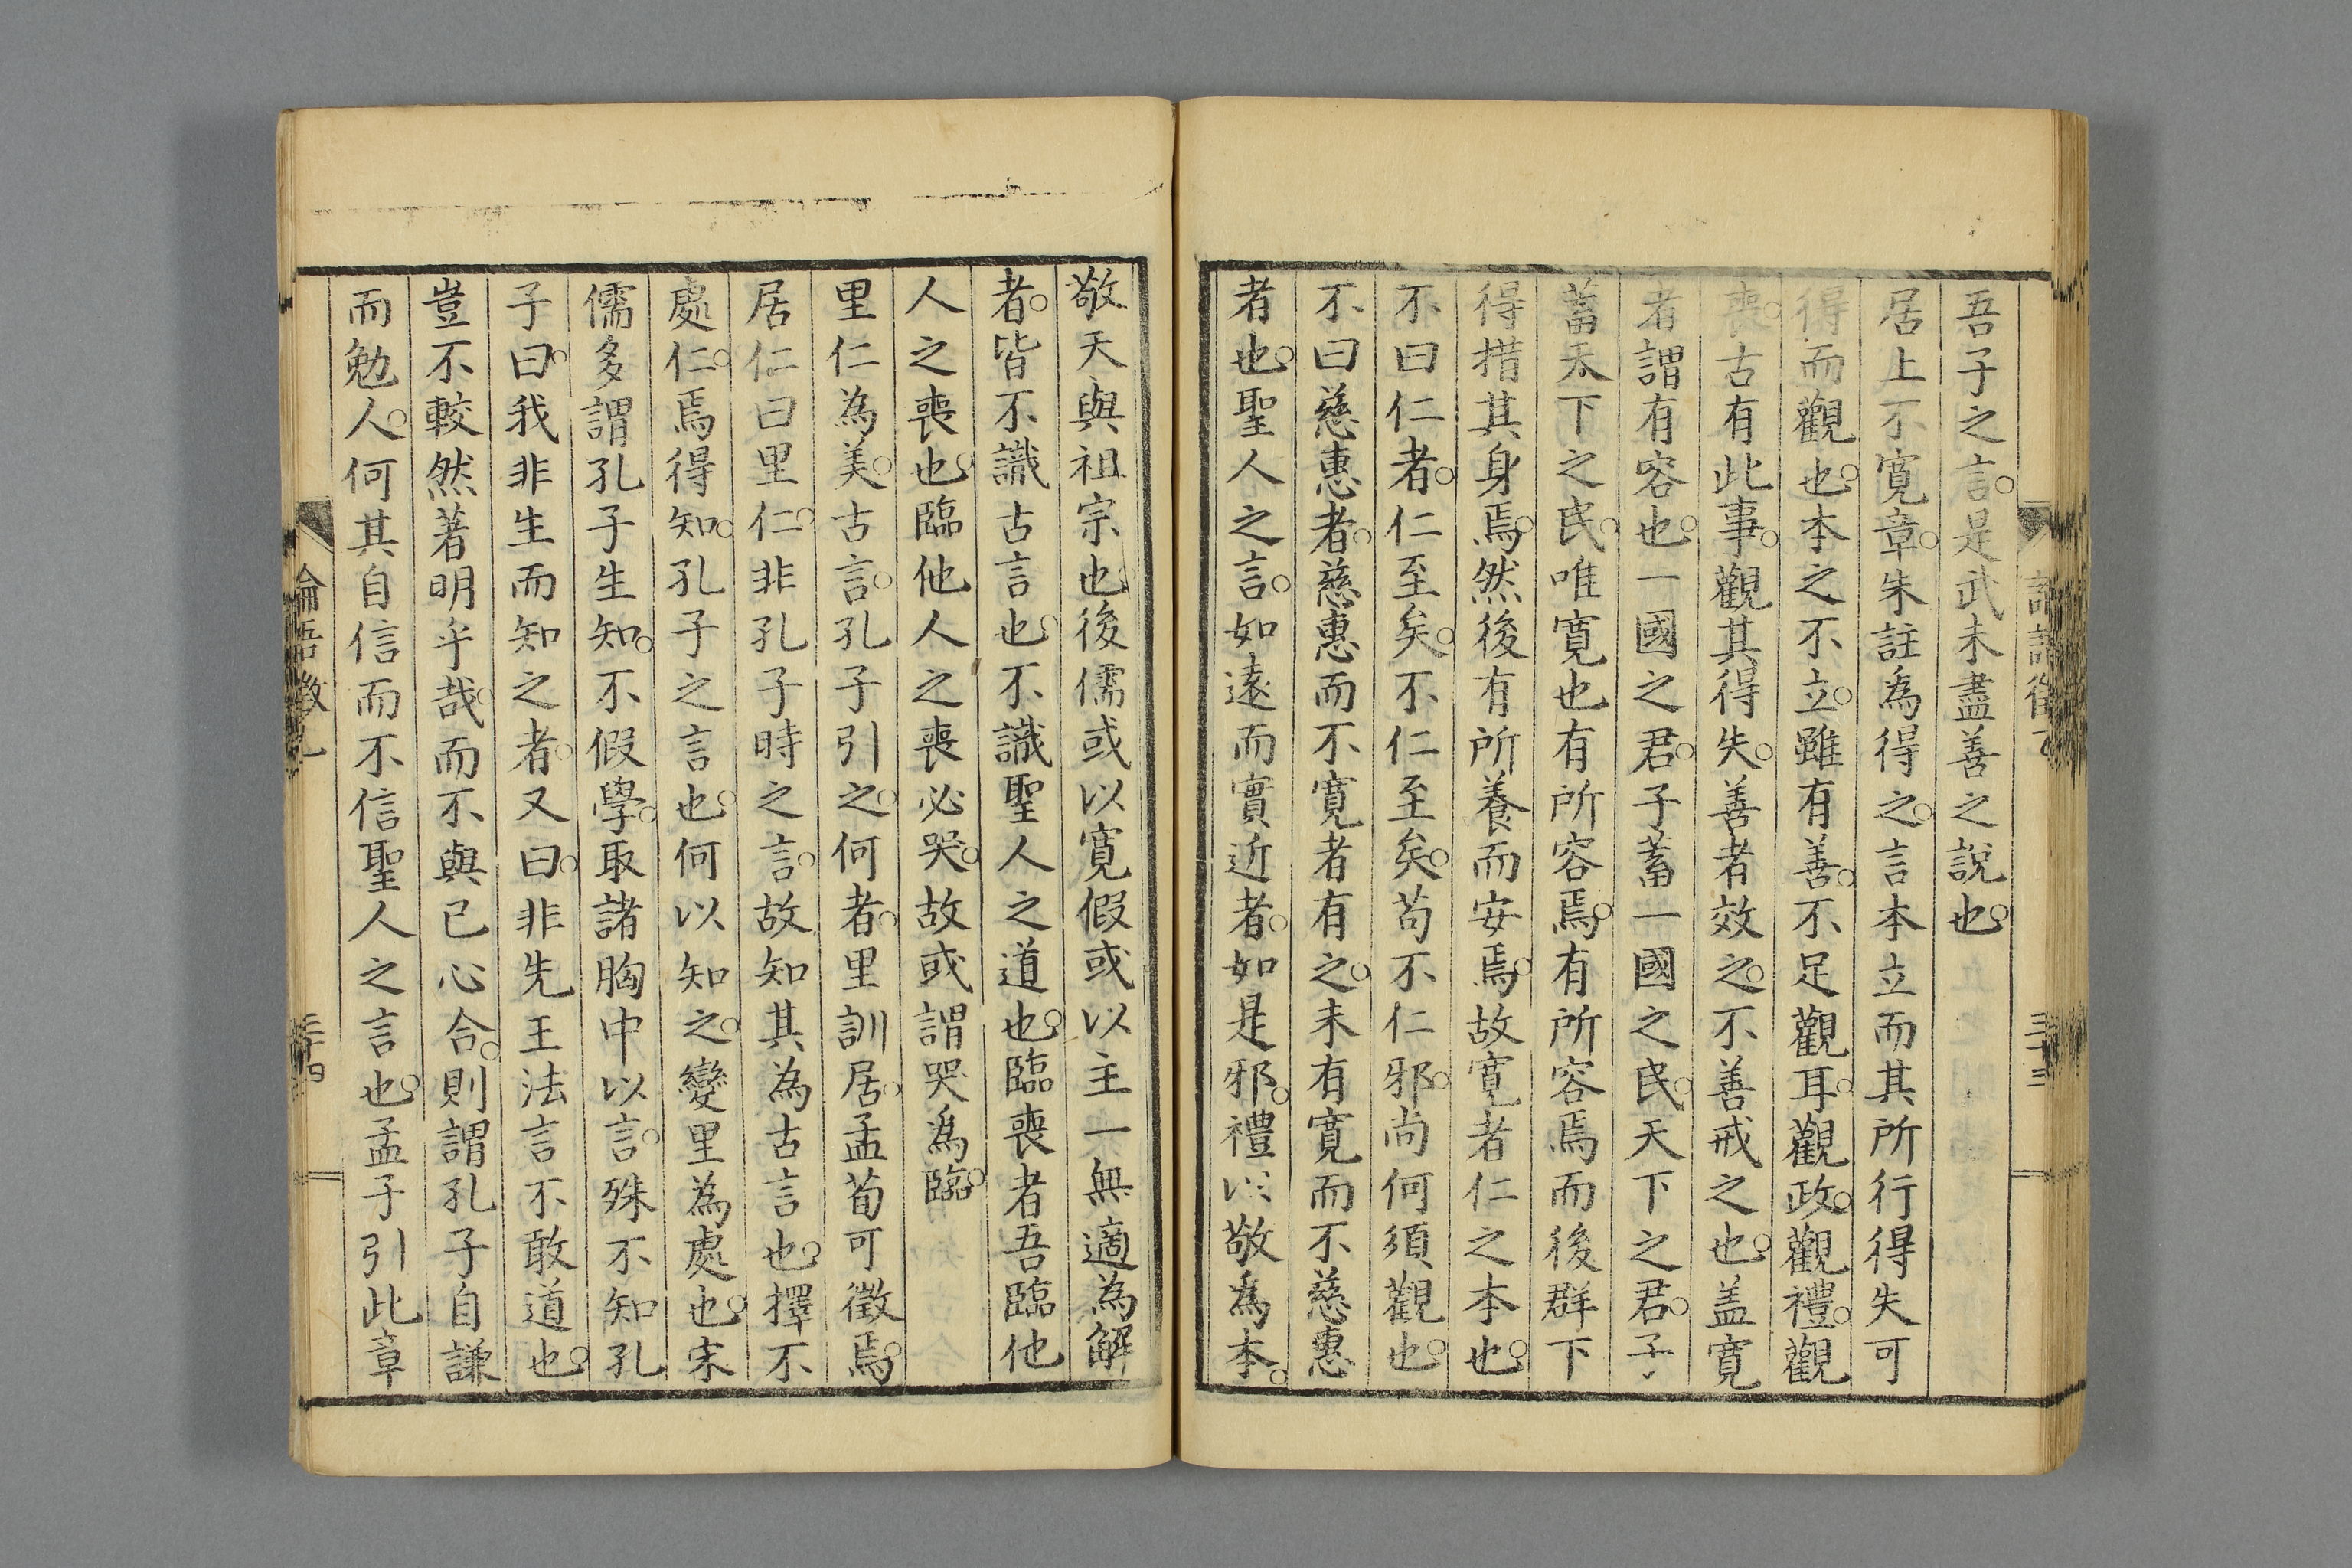 吾子之言。是武未盡善之説也。
居上不寛章。朱註為得之。言本立而其所行得失可
得而觀也。本之不立。雖有善。不足觀耳。觀政。觀禮。觀
喪。古有此事。觀其得失。善者效之。不善戒之也。盖寛
者謂有容也。一國之君。子蓄一國之民。天下之君。子
蓄天下之民。唯寛也有所容焉。有所容焉而後群下
得措其身焉。然後有所養而安焉。故寛者仁之本也。
不曰仁者。仁至矣。不仁至矣。苟不仁邪。尚何須觀也。
不曰慈惠者。慈惠而不寛者有之。未有寛而不慈惠
者也。聖人之言。如遠而實近者。如是邪。禮以敬為本。
敬天與祖宗也。後儒或以寛假或以主一無適為解
者。皆不識古言也。不識聖人之道也。臨喪者吾臨他
人之喪也。臨他人之喪必哭。故或謂哭為臨。
里仁為美。古言。孔子引之。何者。里訓居。孟荀可徵焉。
居仁曰里仁。非孔子時之言。故知其為古言也。擇不
處仁。焉得知。孔子之言也。何以知之。變里為處也。宋
儒多謂孔子生知。不假學。取諸胸中以言。殊不知孔
子曰。我非生而知之者。又曰。非先王法言不敢道也。
豈不較然著明乎哉。而不與己心合。則謂孔子自謙
而勉人。何其自信而不信聖人之言也。孟子引此章
三十四